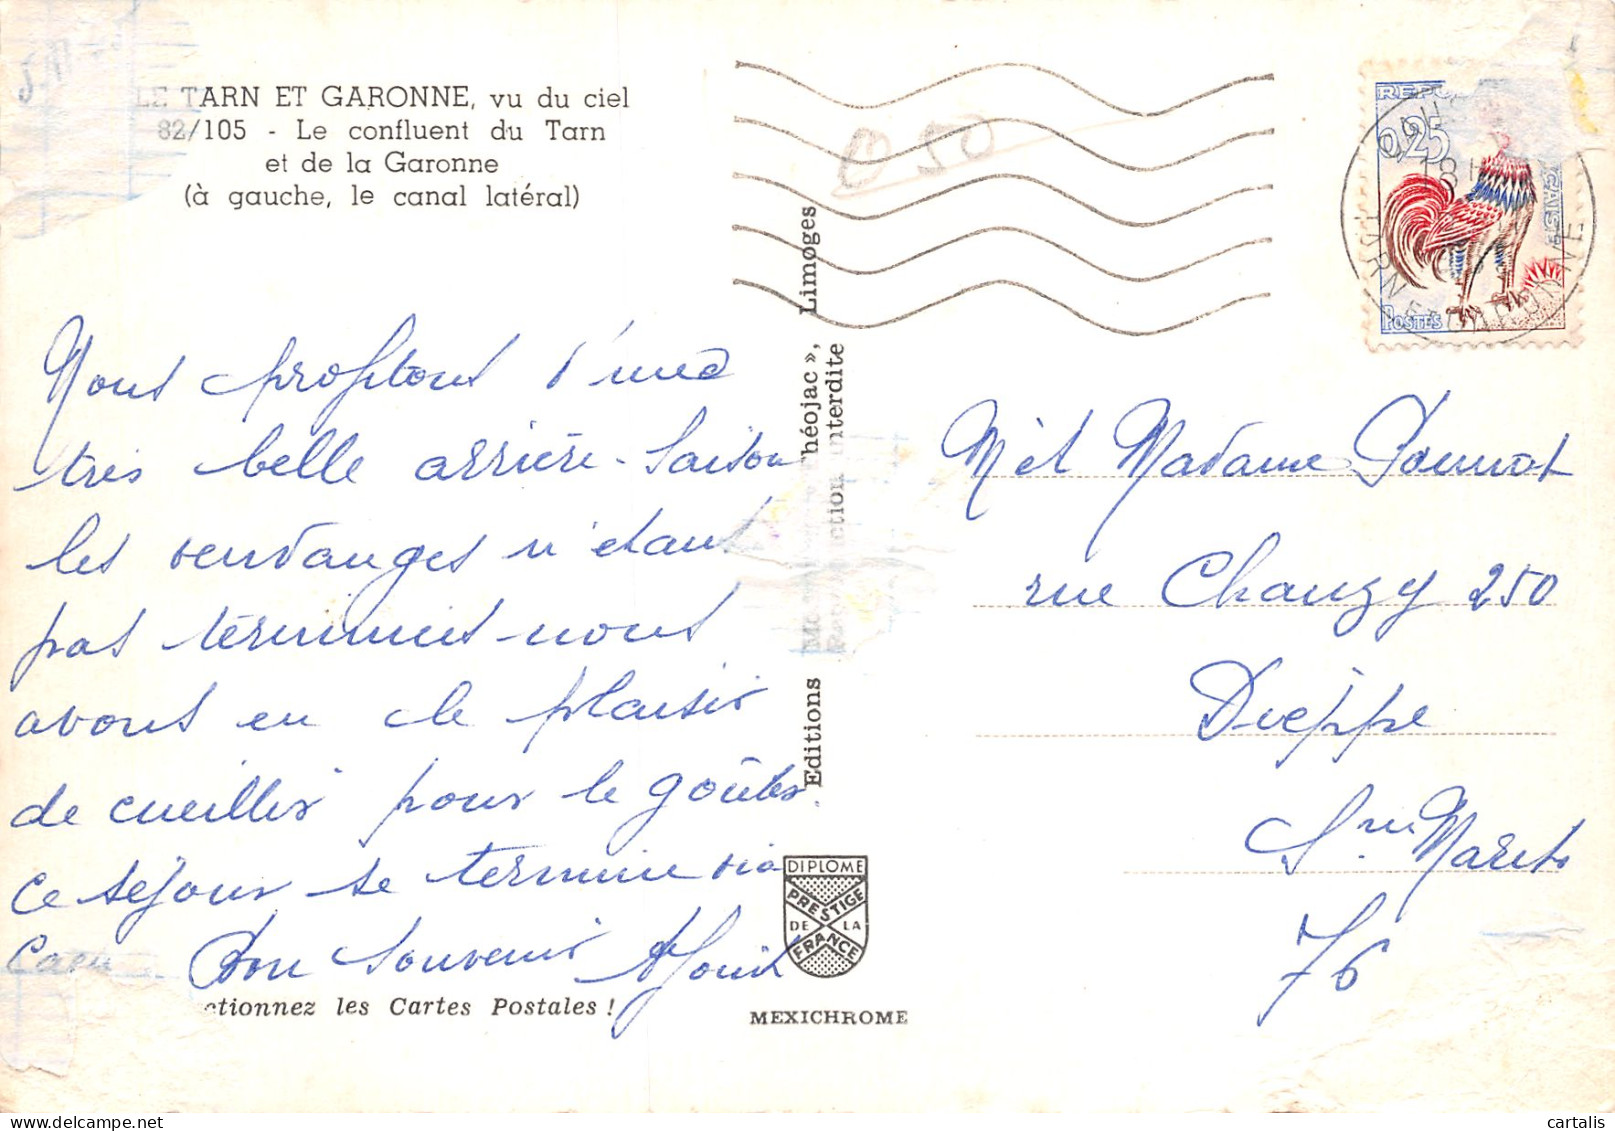 LE TARN ET GARONNE, vu du ciel
82/105 - Le confluent du Tarn
et de la Garonne
(à gauche, le canal latéral)
0 50
REPU
0,25
ÇAISE
POSTES
18H
TARN ET GARONNE
Nous profitons d'une
très belle arrière-saison
les vendanges n'étant
pas terminés nous
avons eu le plaisir
de cueillir pour le goûter.
Ce séjour se termine via
Caen. Bon Souvenir
Editions Théojac », Limoges
Reproduction interdite
M et Madame
rue Chanzy 250
Dieppe
Sne Marit
76
DIPLOME
PRESTIGE
DE LA
FRANCE
ctionnez les Cartes Postales !
MEXICHROME
cartalis